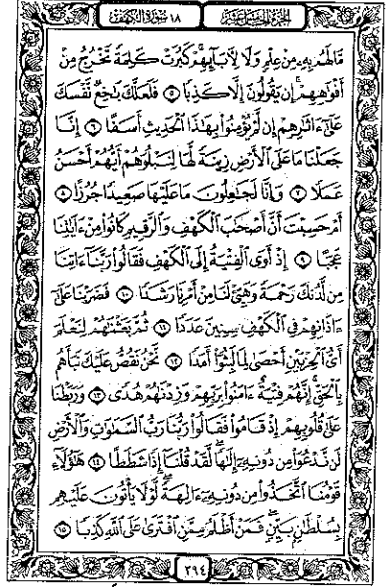 الجزء الخامس عشر ١٨ سورة الكهف
مَّا لَهُم بِهِۦ مِنْ عِلْمٍ وَلَا لِءَابَآئِهِمْ ۚ كَبُرَتْ كَلِمَةً تَخْرُجُ مِنْ
أَفْوَٰهِهِمْ ۚ إِن يَقُولُونَ إِلَّا كَذِبًا ٥ فَلَعَلَّكَ بَٰخِعٌ نَّفْسَكَ
عَلَىٰٓ ءَاثَٰرِهِمْ إِن لَّمْ يُؤْمِنُوا۟ بِهَٰذَا ٱلْحَدِيثِ أَسَفًا ٦ إِنَّا
جَعَلْنَا مَا عَلَى ٱلْأَرْضِ زِينَةً لَّهَا لِنَبْلُوَهُمْ أَيُّهُمْ أَحْسَنُ
عَمَلًا ٧ وَإِنَّا لَجَٰعِلُونَ مَا عَلَيْهَا صَعِيدًا جُرُزًا ٨
أَمْ حَسِبْتَ أَنَّ أَصْحَٰبَ ٱلْكَهْفِ وَٱلرَّقِيمِ كَانُوا۟ مِنْ ءَايَٰتِنَا
عَجَبًا ٩ إِذْ أَوَى ٱلْفِتْيَةُ إِلَى ٱلْكَهْفِ فَقَالُوا۟ رَبَّنَآ ءَاتِنَا
مِن لَّدُنكَ رَحْمَةً وَهَيِّئْ لَنَا مِنْ أَمْرِنَا رَشَدًا ١٠ فَضَرَبْنَا عَلَىٰٓ
ءَاذَانِهِمْ فِى ٱلْكَهْفِ سِنِينَ عَدَدًا ١١ ثُمَّ بَعَثْنَٰهُمْ لِنَعْلَمَ
أَىُّ ٱلْحِزْبَيْنِ أَحْصَىٰ لِمَا لَبِثُوٓا۟ أَمَدًا ١٢ نَّحْنُ نَقُصُّ عَلَيْكَ نَبَأَهُم
بِٱلْحَقِّ ۚ إِنَّهُمْ فِتْيَةٌ ءَامَنُوا۟ بِرَبِّهِمْ وَزِدْنَٰهُمْ هُدًى ١٣ وَرَبَطْنَا
عَلَىٰ قُلُوبِهِمْ إِذْ قَامُوا۟ فَقَالُوا۟ رَبُّنَا رَبُّ ٱلسَّمَٰوَٰتِ وَٱلْأَرْضِ
لَن نَّدْعُوَا۟ مِن دُونِهِۦٓ إِلَٰهًا ۖ لَّقَدْ قُلْنَآ إِذًا شَطَطًا ١٤ هَٰٓؤُلَآءِ
قَوْمُنَا ٱتَّخَذُوا۟ مِن دُونِهِۦٓ ءَالِهَةً ۖ لَّوْلَا يَأْتُونَ عَلَيْهِم
بِسُلْطَٰنٍۭ بَيِّنٍ ۖ فَمَنْ أَظْلَمُ مِمَّنِ ٱفْتَرَىٰ عَلَى ٱللَّهِ كَذِبًا ١٥
٢٩٤